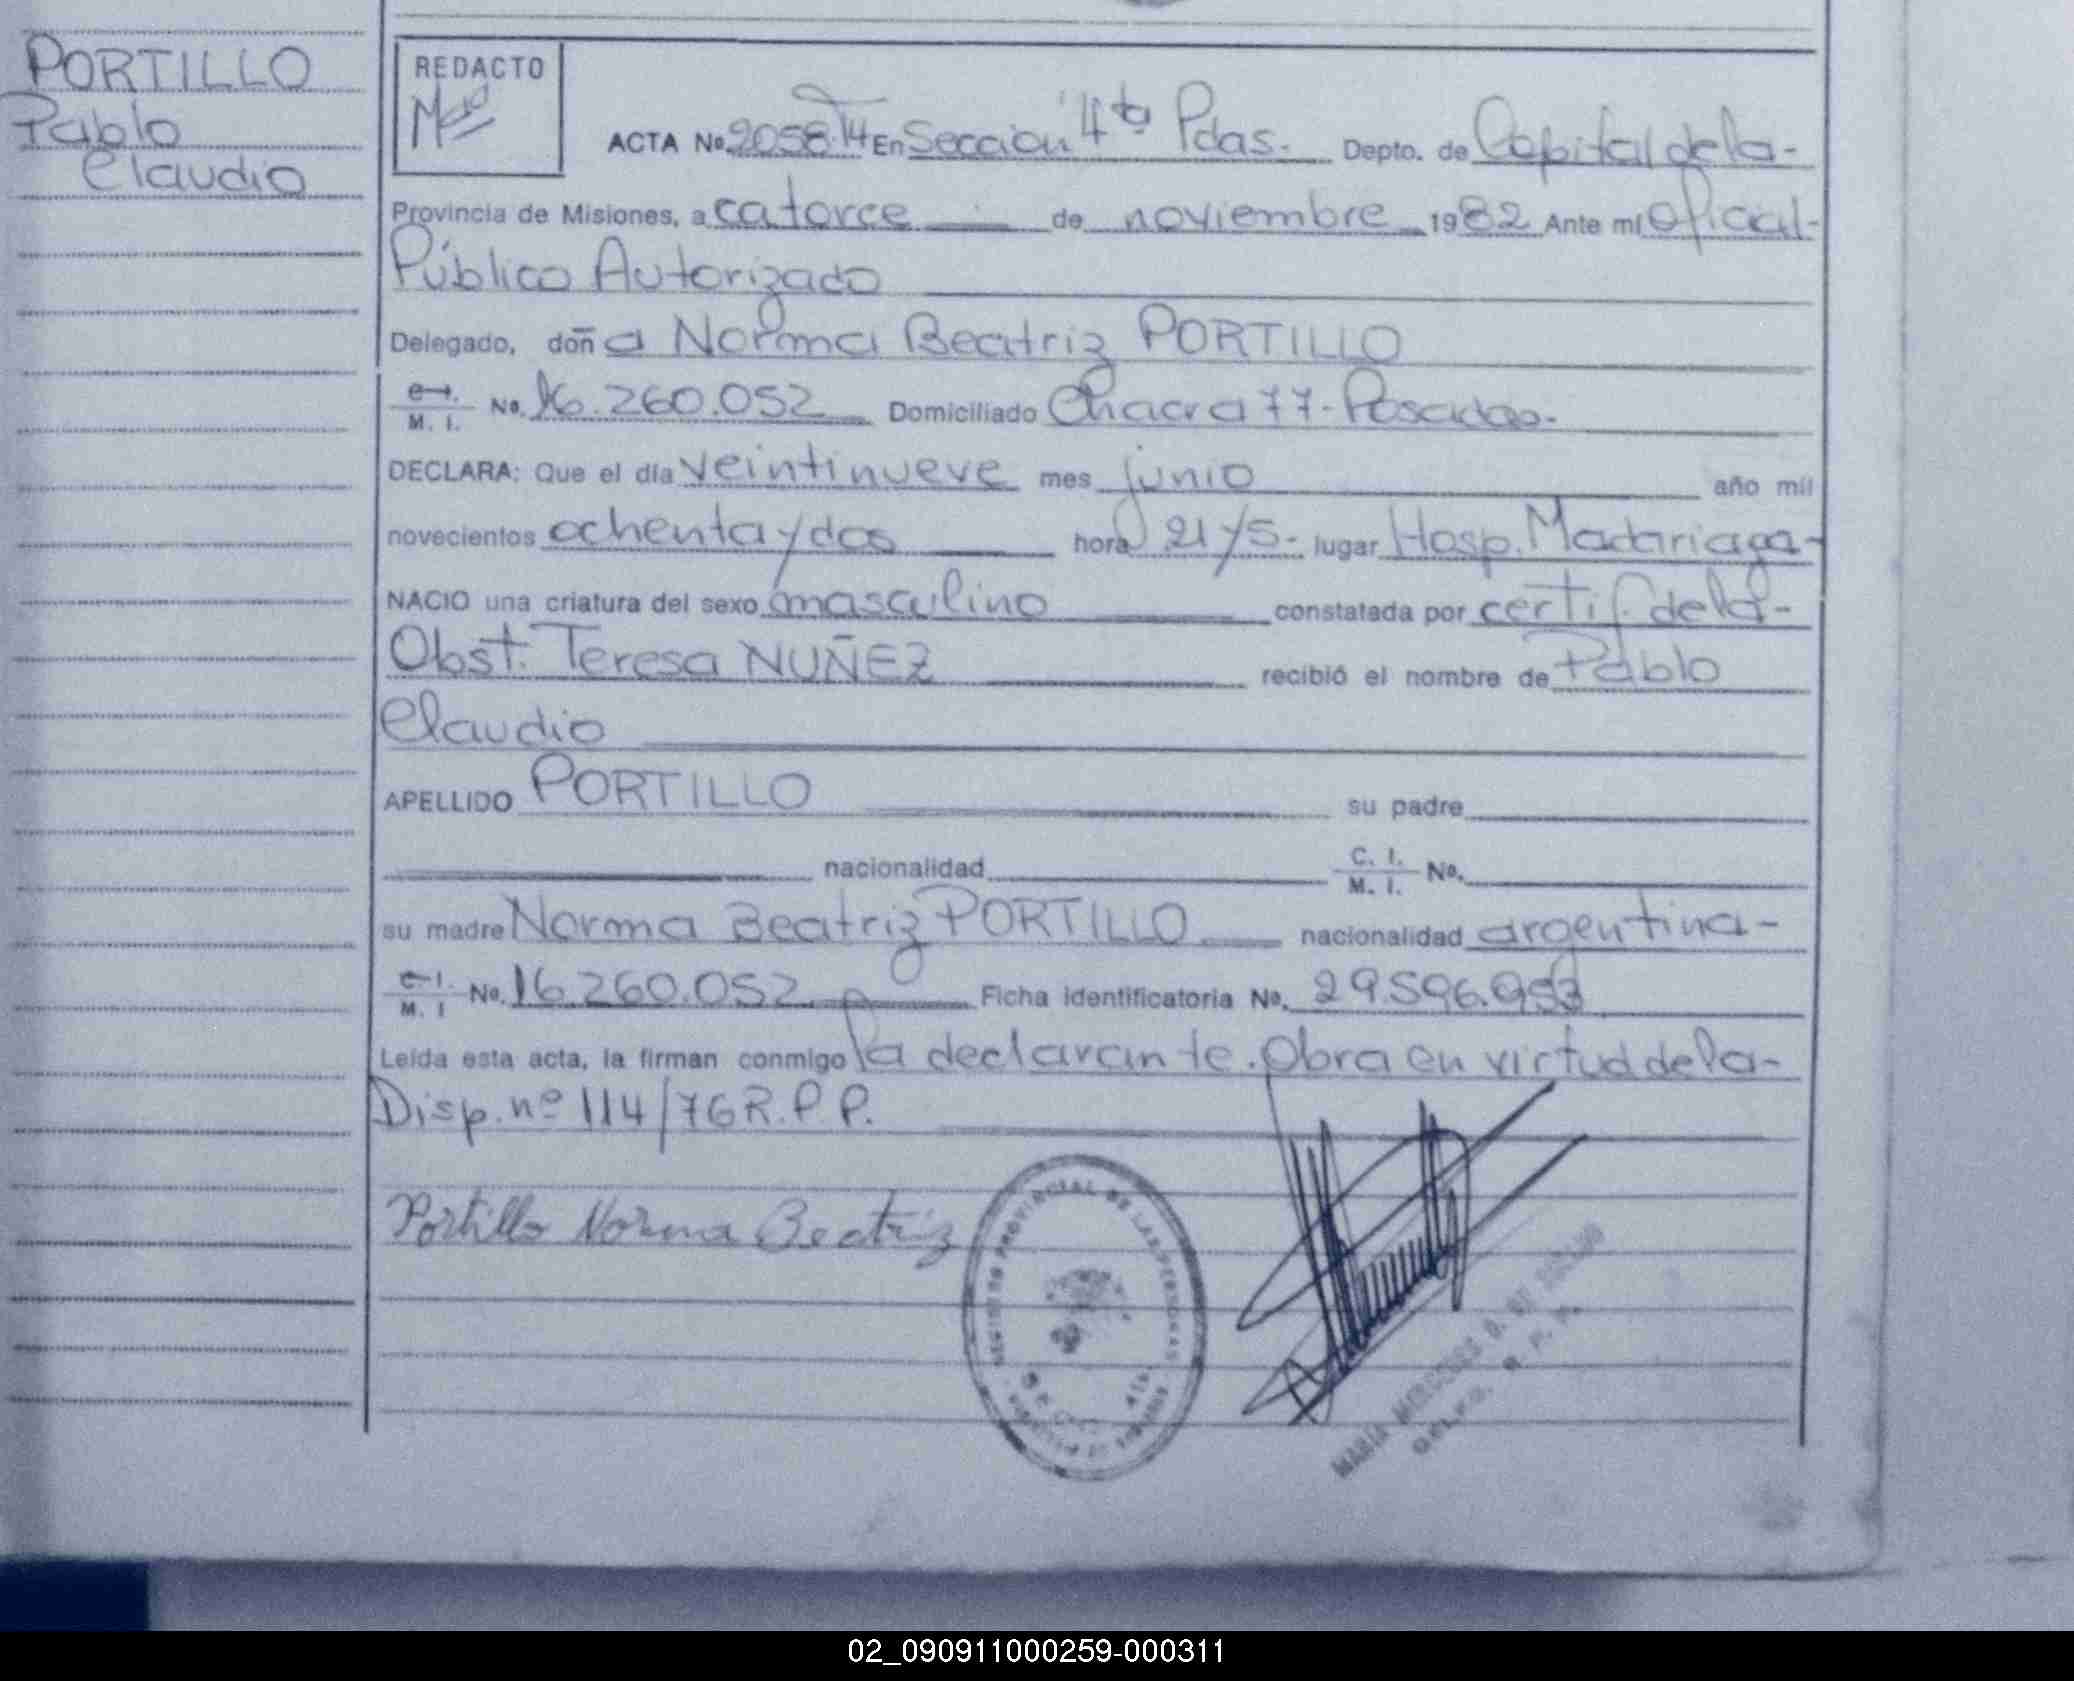 PORTILLO
Pablo
Claudio
REDACTO
ACTA No. 2058 T4 En Sección 4ta Pdas. Depto. de Capital de la-
Provincia de Misiones, a catorce de noviembre 1982 Ante mí Oficial-
Público Autorizado
Delegado, doña Norma Beatriz PORTILLO
C. I.
M. I. No. 16.260.052 Domiciliado Chacra 77- Posadas-
DECLARA: Que el día veintinueve mes junio año mil
novecientos ochenta y dos hora 21 y 5- lugar Hosp. Madariaga-
NACIO una criatura del sexo masculino constatada por certif. de la-
Obst. Teresa NUÑEZ recibió el nombre de Pablo
Claudio
APELLIDO PORTILLO su padre
nacionalidad C. I.
M. I. No.
su madre Norma Beatriz PORTILLO nacionalidad argentina-
C. I.
M. I No. 16.260.052 Ficha identificatoria No. 29.596.953
Leída esta acta, la firman conmigo la declarante. Obra en virtud de la-
Disp. nº 114/76 R.P.P.
Portillo Norma Beatriz
REGISTRO PROVINCIAL DE LAS PERSONAS
SECC. 4ta.
MARIA MERCEDES
DELEG. R. P. P.
02_090911000259-000311